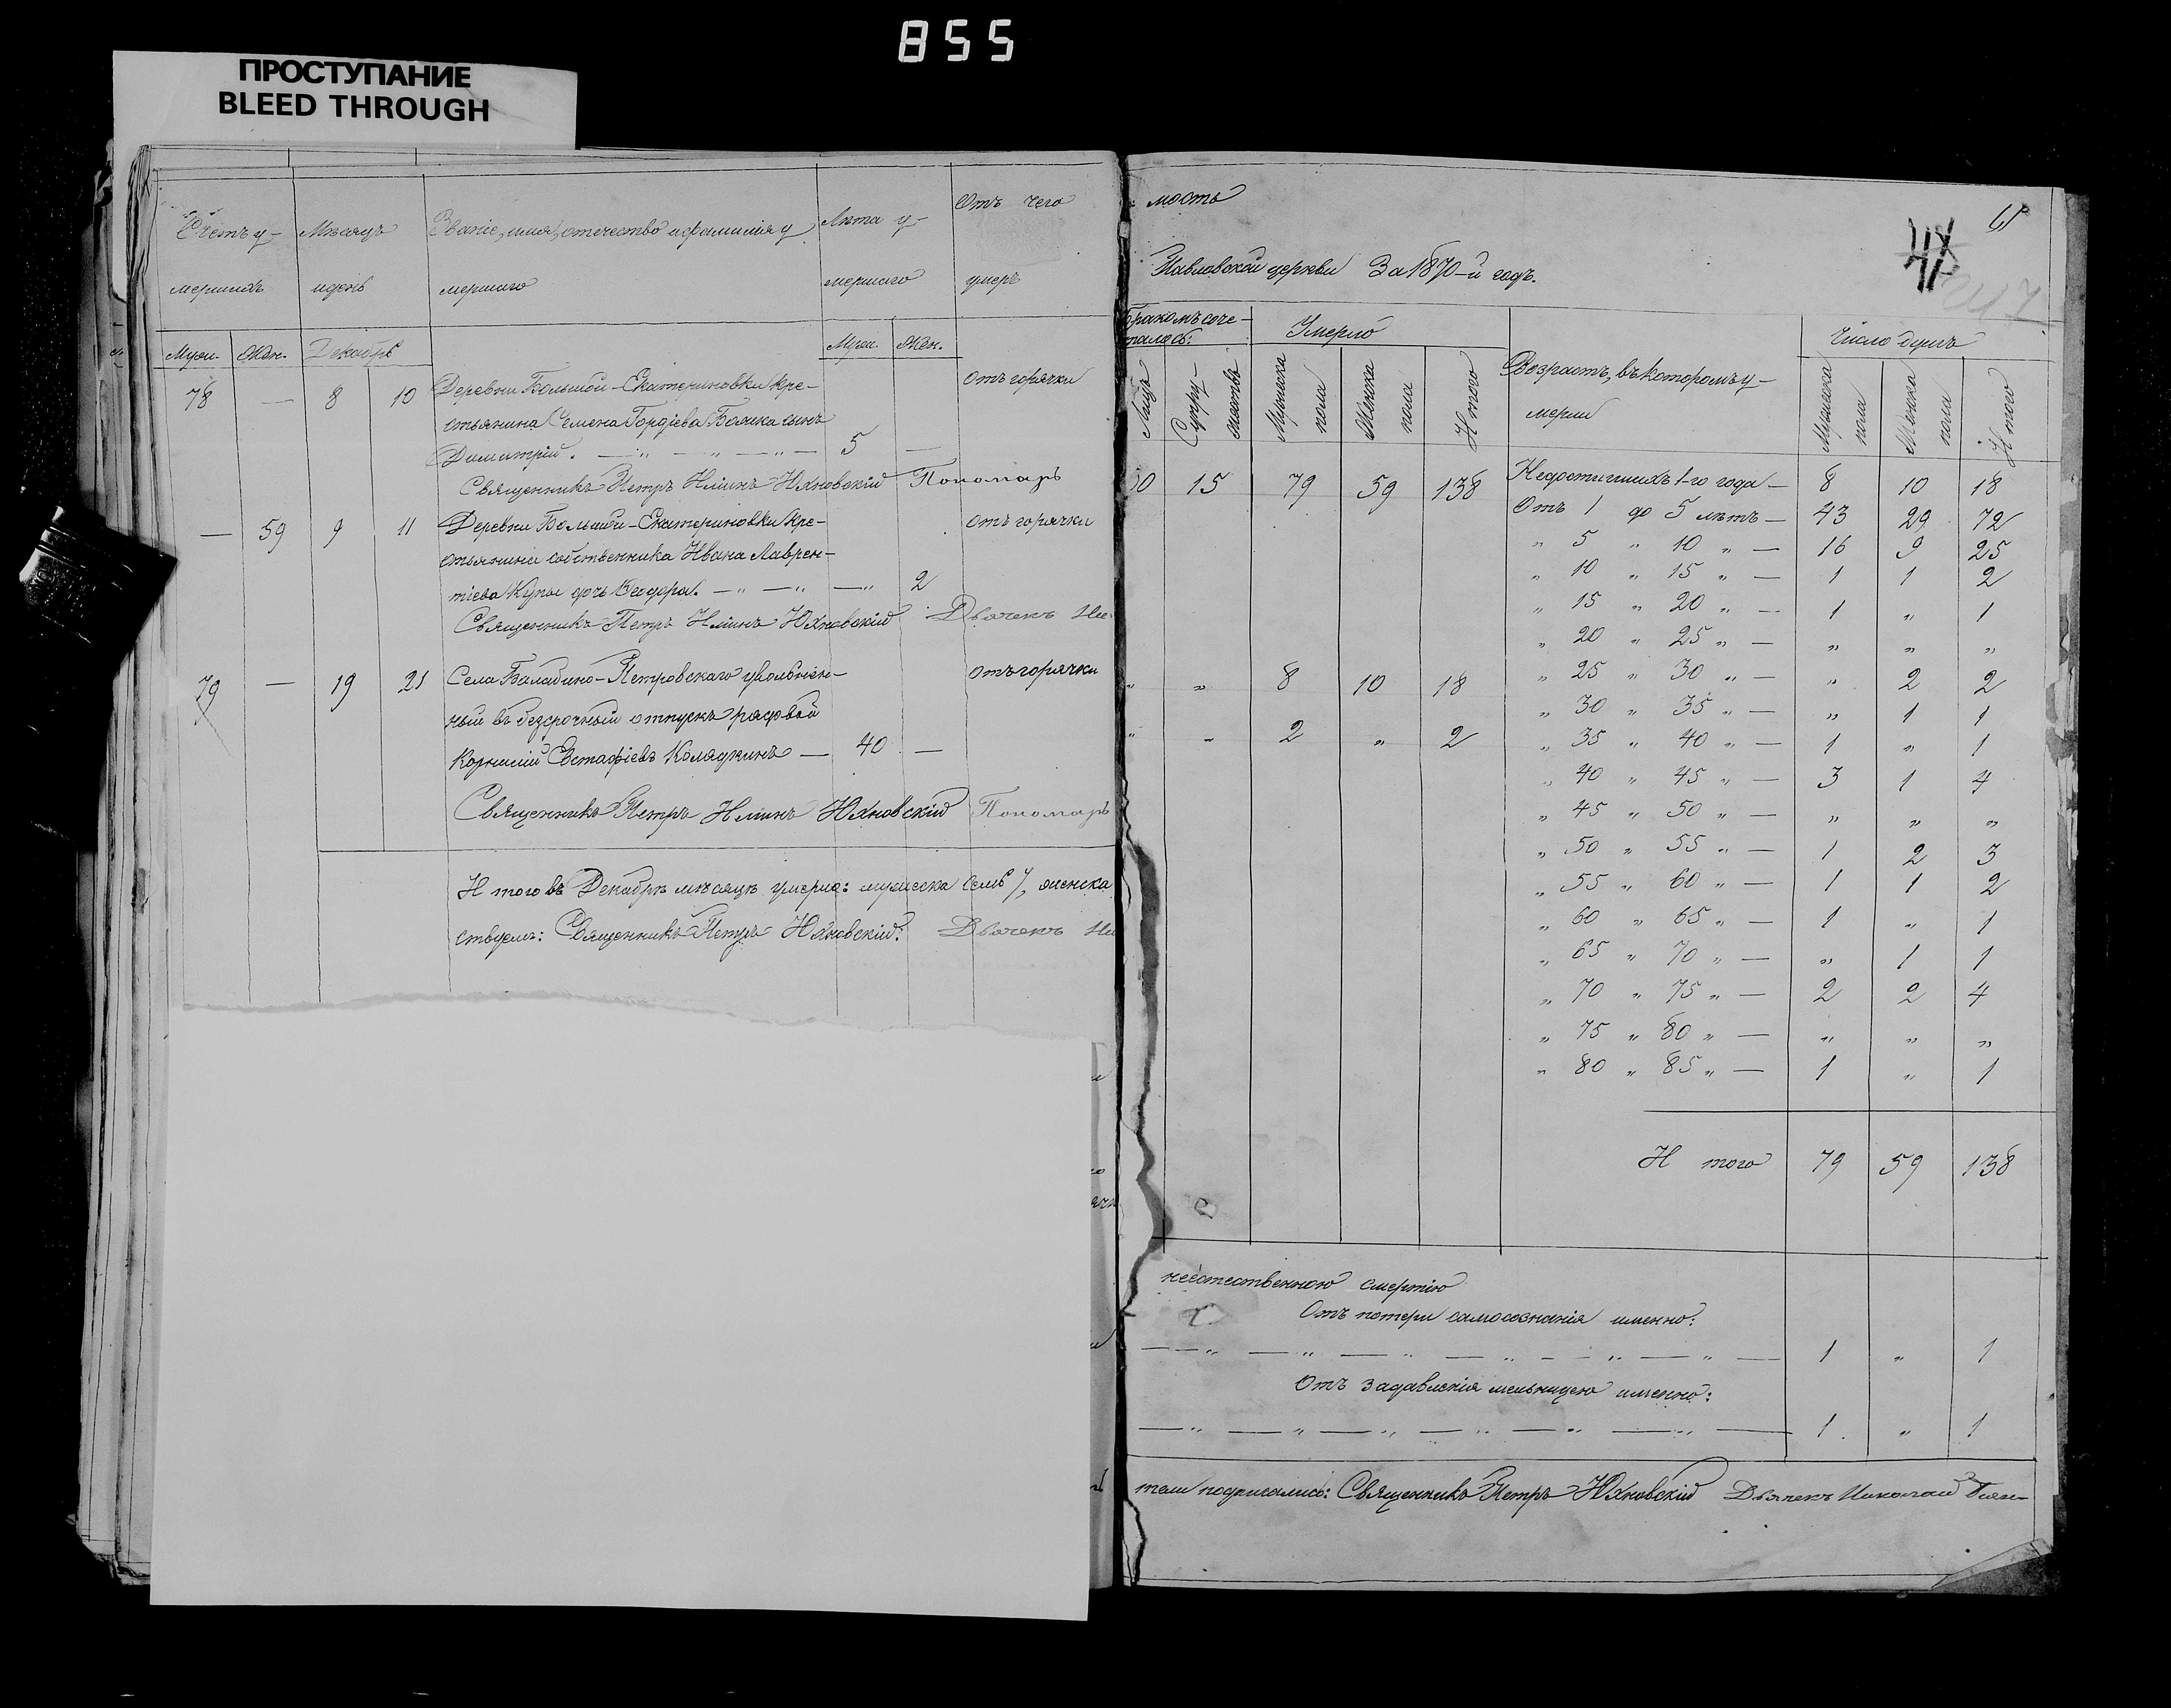 855
ПРОСТУПАНИЕ
BLEED THROUGH
Счетъ у- Мѣсяцъ Званіе, имя, отчество и фамилія у Лѣта у- Отъ чего
мершихъ и день мершаго мершаго умеръ
Муж. Жен. Декабрь Муж. Жен.
78 — 8 10 Деревни Большой-Екатериновки кре- отъ горячки
стьянина Семена Гордіева сынъ
Димитрій. — " — " — " — 5 —
Священникъ Петръ Юхновскій Пономарь
— 59 9 11 Деревни Большой-Екатериновки кре- отъ горячки
собственника Ивана Лаврен-
тіева дочь — " — " — " 2
Священникъ Петръ Юхновскій Дьячекъ Ни-
79 — 19 21 Села Баладино-Петровскаго уволенен- отъ горячки
ный въ безсрочный отпускъ рядовой
Корнилій Евстафіевъ — 40 —
Священникъ Петръ Юхновскій Пономарь
И того въ Декабрѣ мѣсяцѣ умерло: мужеска семь 7, женска
ствуемъ: Священникъ Петръ Юхновскій. Дьячекъ Ни
мость
61
Павловской церкви За 1870-й годъ.
бракомъ соче-
талось: Умерло Возрастъ, въ которомъ у-
мерли Число душъ
Лицъ Супру-
жествъ Мужеска
пола Женска
пола И того Мужеска
пола Женска
пола И того
30 15 79 59 138 Недостигшихъ 1-го года — 8 10 18
Отъ 1 до 5 лѣтъ — 43 29 72
" 5 " 10 " — 16 9 25
" 10 " 15 " — 1 1 2
" 15 " 20 " — 1 " 1
" 20 " 25 " — " " "
" " 8 10 18 " 25 " 30 " — " 2 2
" 30 " 35 " — " 1 1
" " 2 " 2 " 35 " 40 " — 1 " 1
" 40 " 45 " — 3 1 4
" 45 " 50 " — " " "
" 50 " 55 " — 1 2 3
" 55 " 60 " — 1 1 2
" 60 " 65 " — 1 " 1
" 65 " 70 " — " 1 1
" 70 " 75 " — 2 2 4
" 75 " 80 " — " " "
" 80 " 85 " — 1 " 1
И того 79 59 138
неестественною смертію
Отъ потери самосознанія именно:
— " — " — " — " — " — " — 1 " 1
Отъ задавленія мельницею именно:
— " — " — " — " — " — " — 1 " 1
тели подписались: Священникъ Петръ Юхновскій Дьячекъ Николай